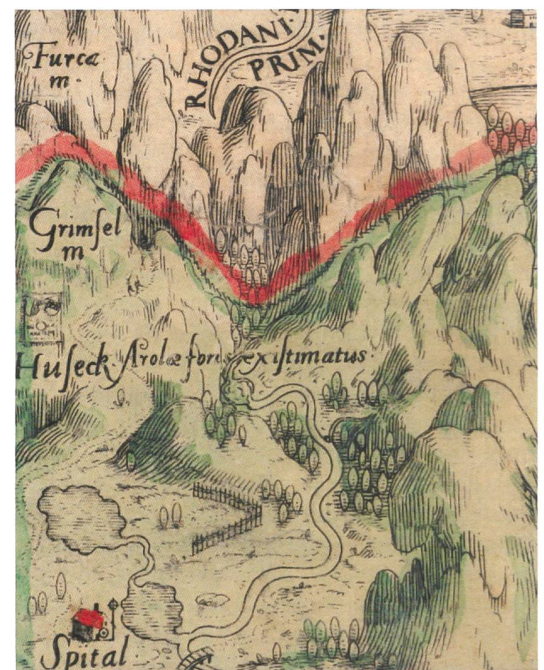 Furca
m.
RHODANI·
PRIM:
Grimſel
m
Huſeck Arolæ fons exiſtimatus·
Spital